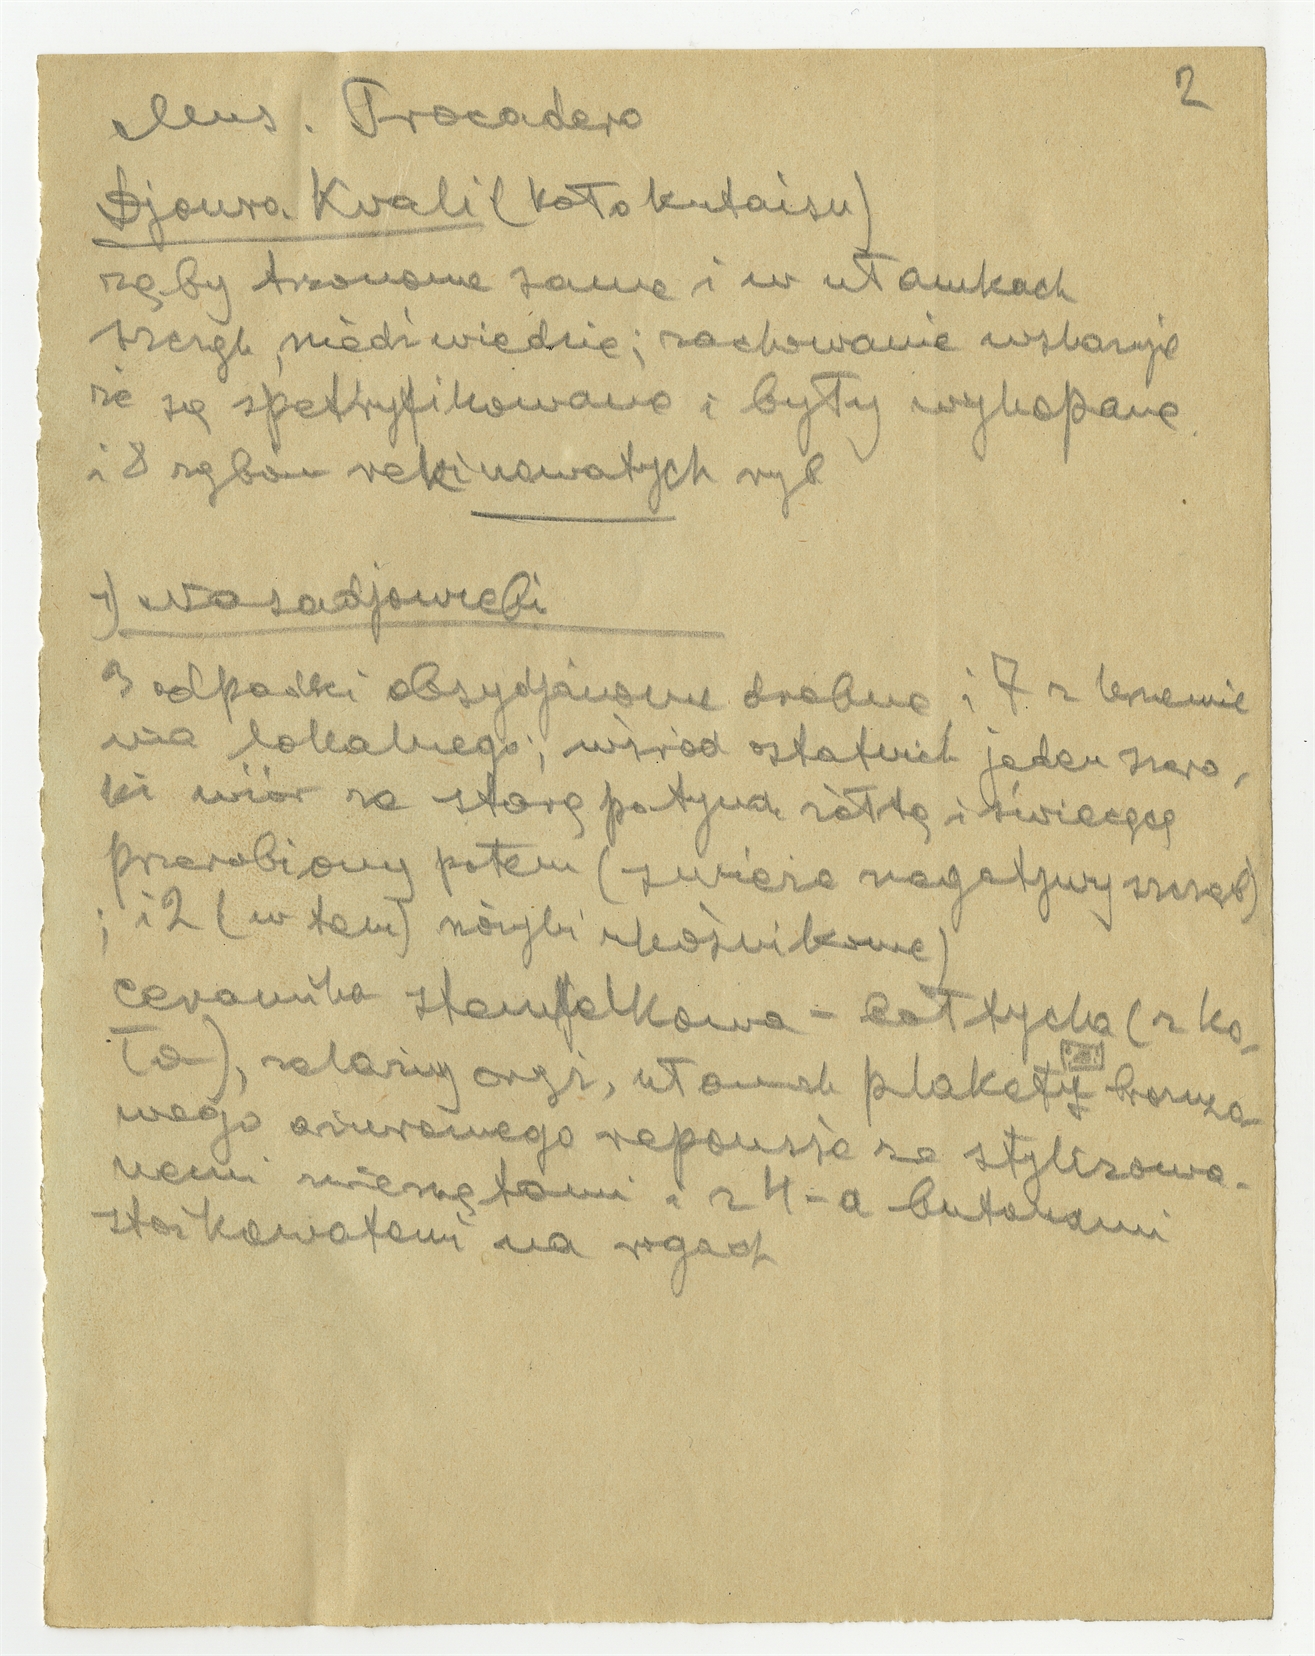 2
Mus. Trocadero
Djoura Kvali (koło kutaisu)
zęby trzonowe same i w ułamkach
szczęk niedźwiedzie; zachowanie wskazuje
że są spetryfikowane i były wykopane
i 8 zębów rekinowatych ryb
1) Nosadjowrebi
3 odpadki obsydjanowe drobne i 7 z krzemie
nia lokalnego; wśród ostatnich jeden szero-
ki wiór ze starą patyną żółtą i świecącą
przerobiony potem (świeże negatywy szczerb)
; i 2 (w tem) nożyki ukośnikowe)
ceramika stempelkowa - całtycha (z ko-
ła), żelazny orgz, ułamek plakety bronzo-
wego ażurowego repousse ze stylizowa-
nemi zwierzętami i z 4-a butonami
stożkowatemi na rogach